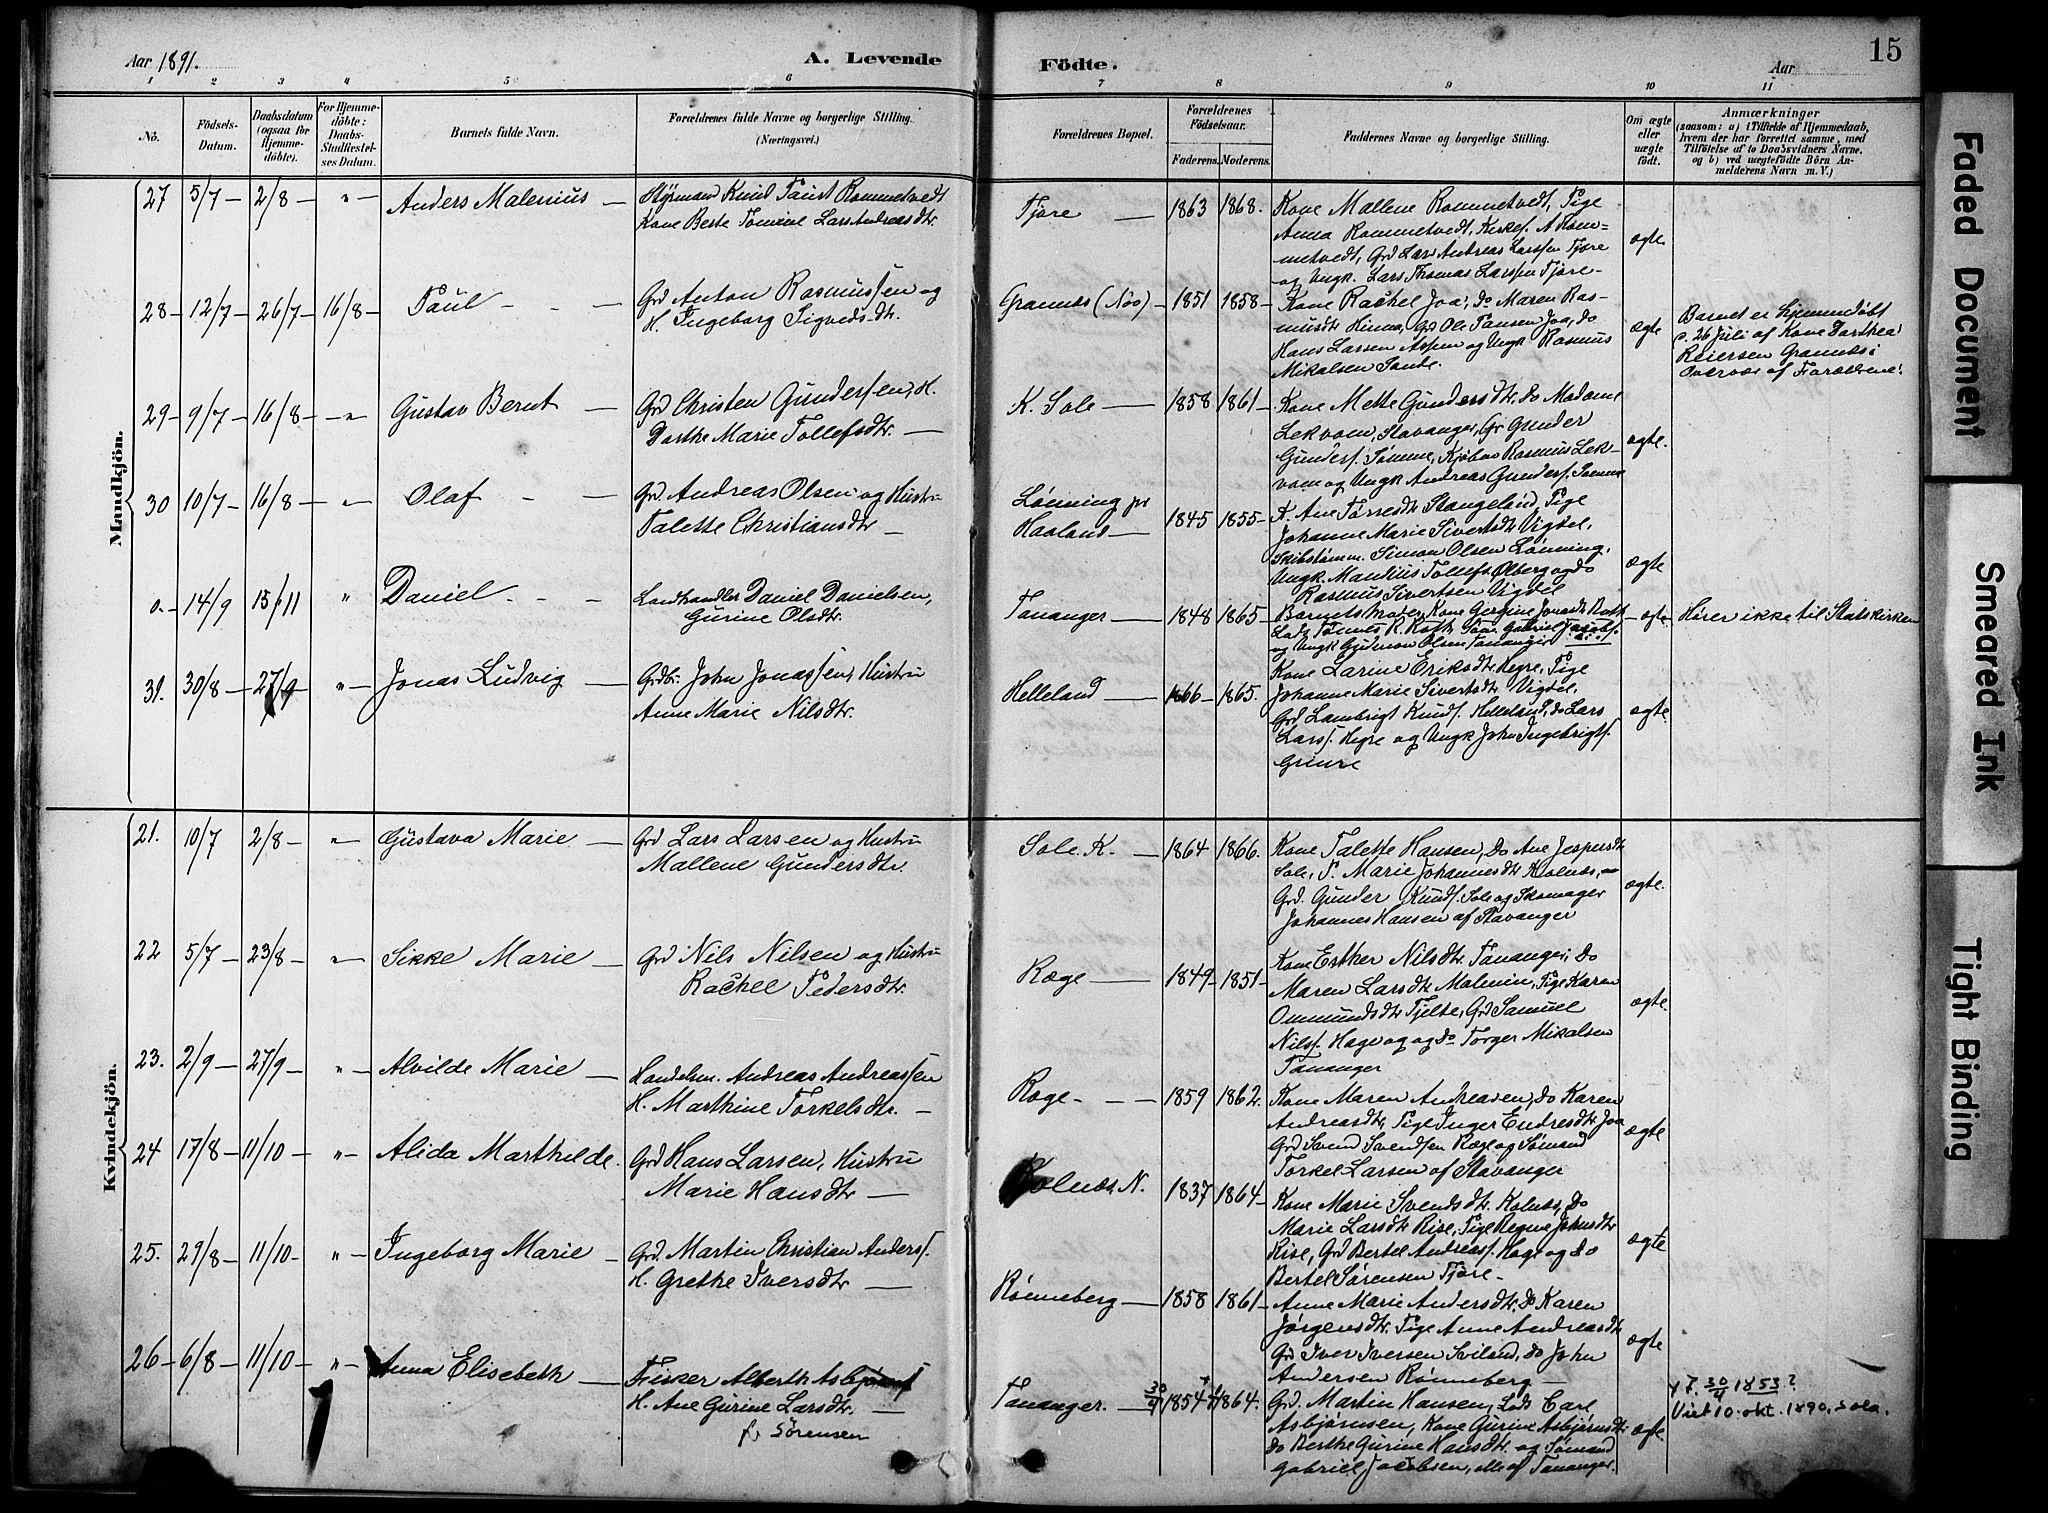 Aar 1891.
A. Levende
Födte.
Aar
15
1 2 3 4 5 6 7 8 9 10 11
No.
Födsels-
Datum.
Daabsdatum
(ogsaa for
Hjemme-
döbte).
For Hjemme-
döbte:
Daabs-
Stadfæstel-
ses Datum.
Barnets fulde Navn.
Forældrenes fulde Navne og borgerlige Stilling.
(Næringsvei.)
Forældrenes Bopæl.
Forældrenes
Födselsaar.
Faderens. Moderens.
Faddernes Navne og borgerlige Stilling.
Om ægte
eller
uægte
födt.
Anmærkninger
(saasom: a) i Tilfælde af Hjemmedaab,
hvem der har forrettet samme, med
Tilföielse af to Daabsvidners Navne.
og b) ved uægtefödte Börn An-
melderens Navn m. V.)
Mandkjön.
27 5/7 – 2/8 – " – Anders Malenius –
Styrmand Knud Faust Rommetvedt
Kone Berte Tomine Lars Andreasdtr.
Tjore – 1863 1868.
Kone Mallene Rommetvedt, Pige
Anna Rommetvedt, Kirkes. A Rom-
metvedt, Grd Lars Andreas Larssen Tjore
og Ungk. Lars Thomas Larssen Tjore –
ægte
28 – 12/7 – 26/7 – 16/8 – Paul – – –
Grd Anton Rasmussen og
H. Ingeborg Sigvedsdtr.
Grannes (Noo) – 1851 1858 –
Kone Rachel Joa, do Maren Ras-
musdtr Hinna, Grd Ole Paulsen Joa, do
Hans Larsen Aspen og Ungk Rasmus
Mikalsen Sande.
ægte
Barnet er hjemmedøbt
d. 26 Juli af Kone Dorthea
Reiersen Grannes i
Overvær af Forældrene.
29 – 9/7 – 16/8 – " – Gustav Bernt –
Grd Christen Gundersen, H.
Dorthe Marie Tollefsdtr. –
K. Sole – 1858 1861 –
Kone Mette Gundersdtr, do Madame
Lekvam, Stavanger, Gr Gunder
Gunders. Sømme, Kjøbm Rasmus Lek-
vam og Ungk Andreas Gunders. Sømme
ægte.
30 10/7 – 16/8 – " – Olaf – –
Grd Andreas Olsen og Hustru
Talette Christiansdtr –
Lønning pr
Haaland – 1845 1855 –
K. Ane Tørresdtr Stangeland, Pige
Johanne Marie Sivertsdtr Vigdel,
Skibstømm. Simon Olsen Lønning,
Ungk. Mandius Tollefs. Ølberg og do
Rasmus Sivertsen Vigdel
ægte
0. – 14/9 15/11 " Daniel – – –
Landhandler Daniel Danielsen,
Gurine Olsdtr.
Tananger – 1848 – 1865 –
Barnets Moder, Kone Gergine Jonasdtr Roth
Lods Tønnes R. Roth, Søm. Gabriel Jacobs.
og Ungk Gudmon Olsen Tananger
– ægte – Hører ikke til Statskirken
31. 30/8 – 27/9 – " – Jonas Ludvig –
Grdbr. John Jonassen, Hustru
Anne Marie Nilsdtr.
Helleland – 1866 – 1865.
Kone Larine Eriksdtr Hegre, Pige
Johanne Marie Sivertsdtr Vigdel,
Grd Lambrigt Knuds. Helleland, do Lars
Larss. Hegre og Ungk John Ingebrigts.
Grude
ægte.
Kvindekjön.
21. 10/7 2/8 – " – Gustava Marie –
Grd Lars Larsen og Hustru
Mallene Gundersdtr.
Sole. K. – 1864 1866.
Kone Talette Hansen, do Ane Jespersdtr
Sole, P. Marie Johannesdtr Kolnes,
Grd. Gunder Knuds. Sole og Skomager
Johannes Hansen af Stavanger
ægte.
22 5/7 – 23/8 – " – Sikke Marie –
Grd Nils Nilsen og Hustru
Rachel Pedersdtr.
Ræge – 1849 – 1851 –
Kone Esther Nilsdtr Tananger, do
Maren Larsdtr Malmin, Pige Karen
Ommundsdtr Tjelte, Grd Samuel
Nilss. Hage og do Torger Mikalsen
Tananger
ægte.
23. 2/9 – 27/9 – " – Alvilde Marie –
Handelsm. Andreas Andreassen
H. Marthine Torkelsdtr. –
Røge – – – 1859 1862.
Kone Maren Andreasen, do Karen
Andreasdtr, Pige Inger Endresdtr Joa
Grd Svend Svendsen Ræge og Sømand
Torkel Larsen af Stavanger
ægte
24 17/8 – 11/10 – " – Alida Marthilde.
Grd Hans Larsen, Hustru
Marie Hansdtr –
Kolnes, N. 1837 1864 –
Kone Marie Svendsdtr Kolnes, do
Marie Larsdtr Rise, Pige Regine Johnsdtr
Rise, Grd Bertel Andreass. Hage og do
Bertel Sørensen Tjore –
ægte
25. 29/8 – 11/10 – " – Ingeborg Marie –
Grd. Martin Christian Anders.
H. Grethe Iversdtr –
Rønneberg – 1858 1861 –
Anne Marie Andersdtr, do Karen
Jørgensdtr, Pige Anne Andreasdtr
Grd Iver Iversen Sviland, do John
Andersen Rønneberg –
ægte
26 – 6/8 – 11/10 – " – Anna Elisebeth –
Fisker Alberth Asbjørnsen
H. Ane Gurine Larsdtr. –
f. Sørensen
Tananger. – 30/4 1854 1864.
Grd. Martin Hansen, Lods Carl
Asbjørnsen, Kone Gurine Asbjørnsdtr
do Berthe Gurine Hansdtr. og Sømand
Gabriel Jacobsen, alle af Tananger.
ægte.
30/4 1853?
Viet 10. okt. 1890. Sola.
Faded Document
Smeared Ink
Tight Binding